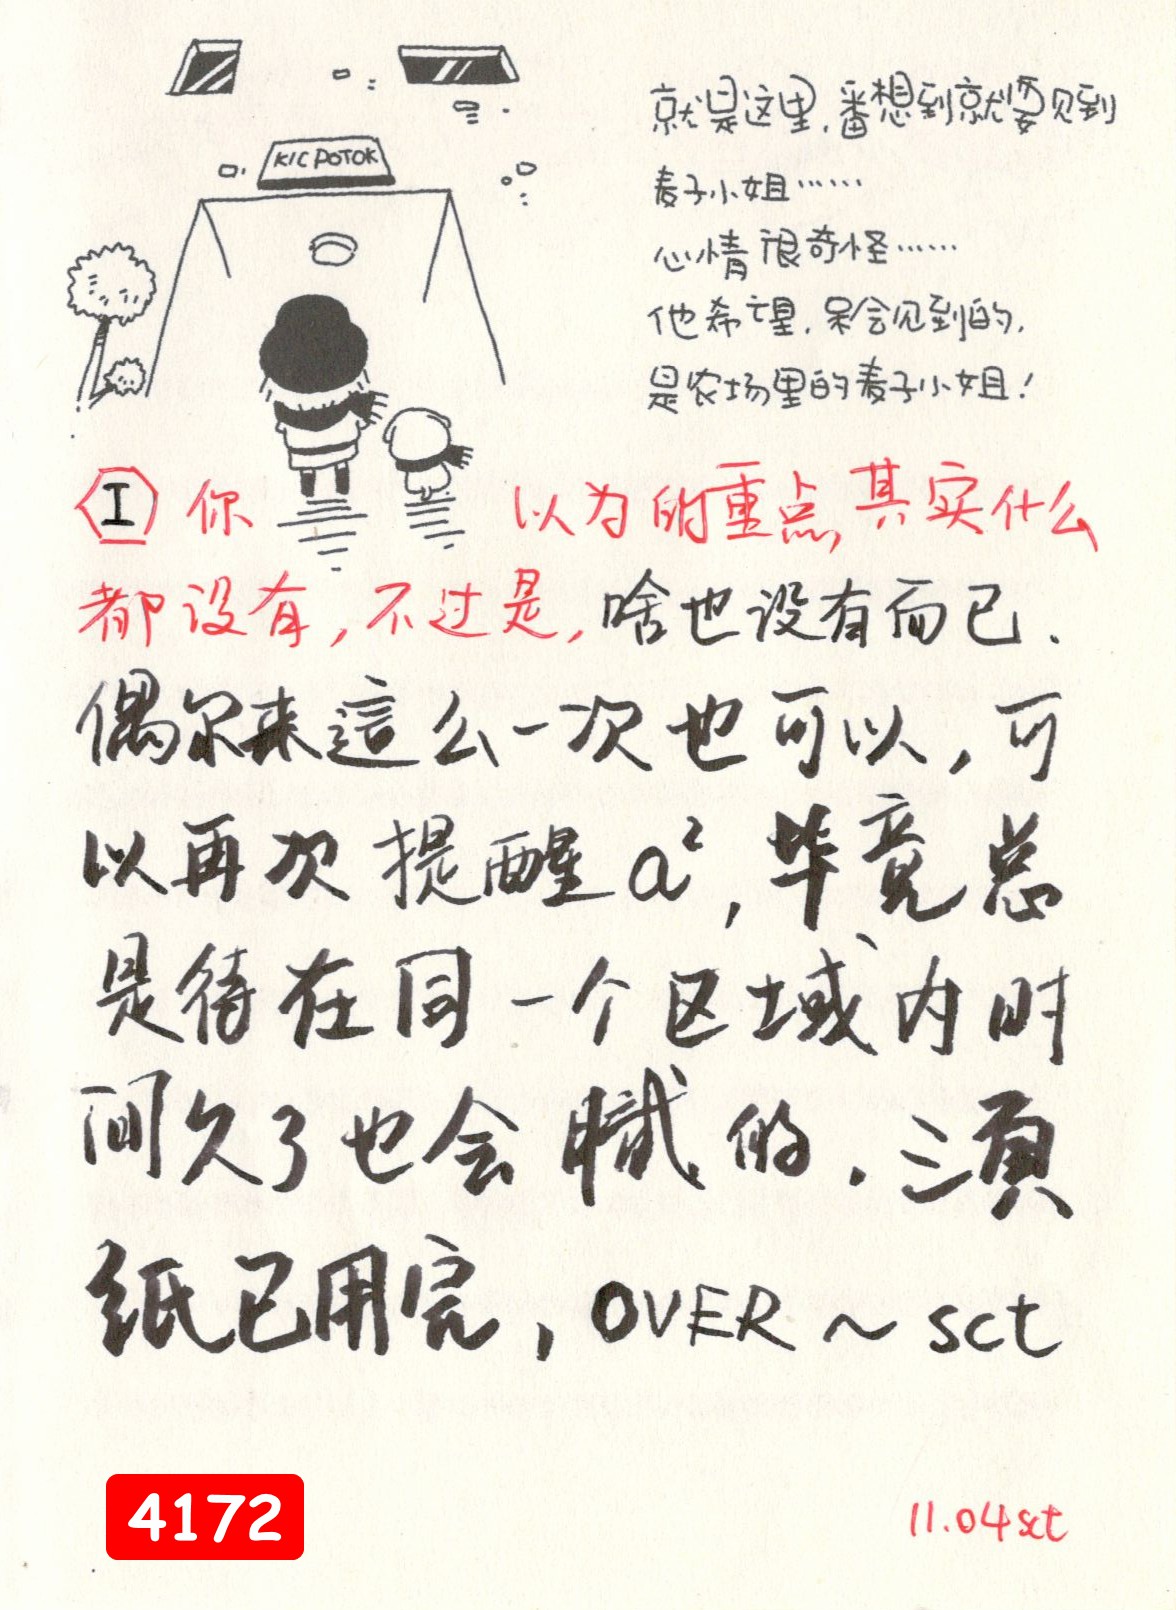 KIC POTOK
就是这里，番想到就要见到
麦子小姐……
心情很奇怪……
他希望，呆会见到的，
是农场里的麦子小姐！
I 你以为的重点，其实什么
都没有，不过是，啥也没有而已．
偶尔来這么一次也可以，可
以再次提醒a²，毕竟总
是待在同一个区域内时
间久了也会腻的．三页
纸已用完，OVER～sct
4172
11.04sct